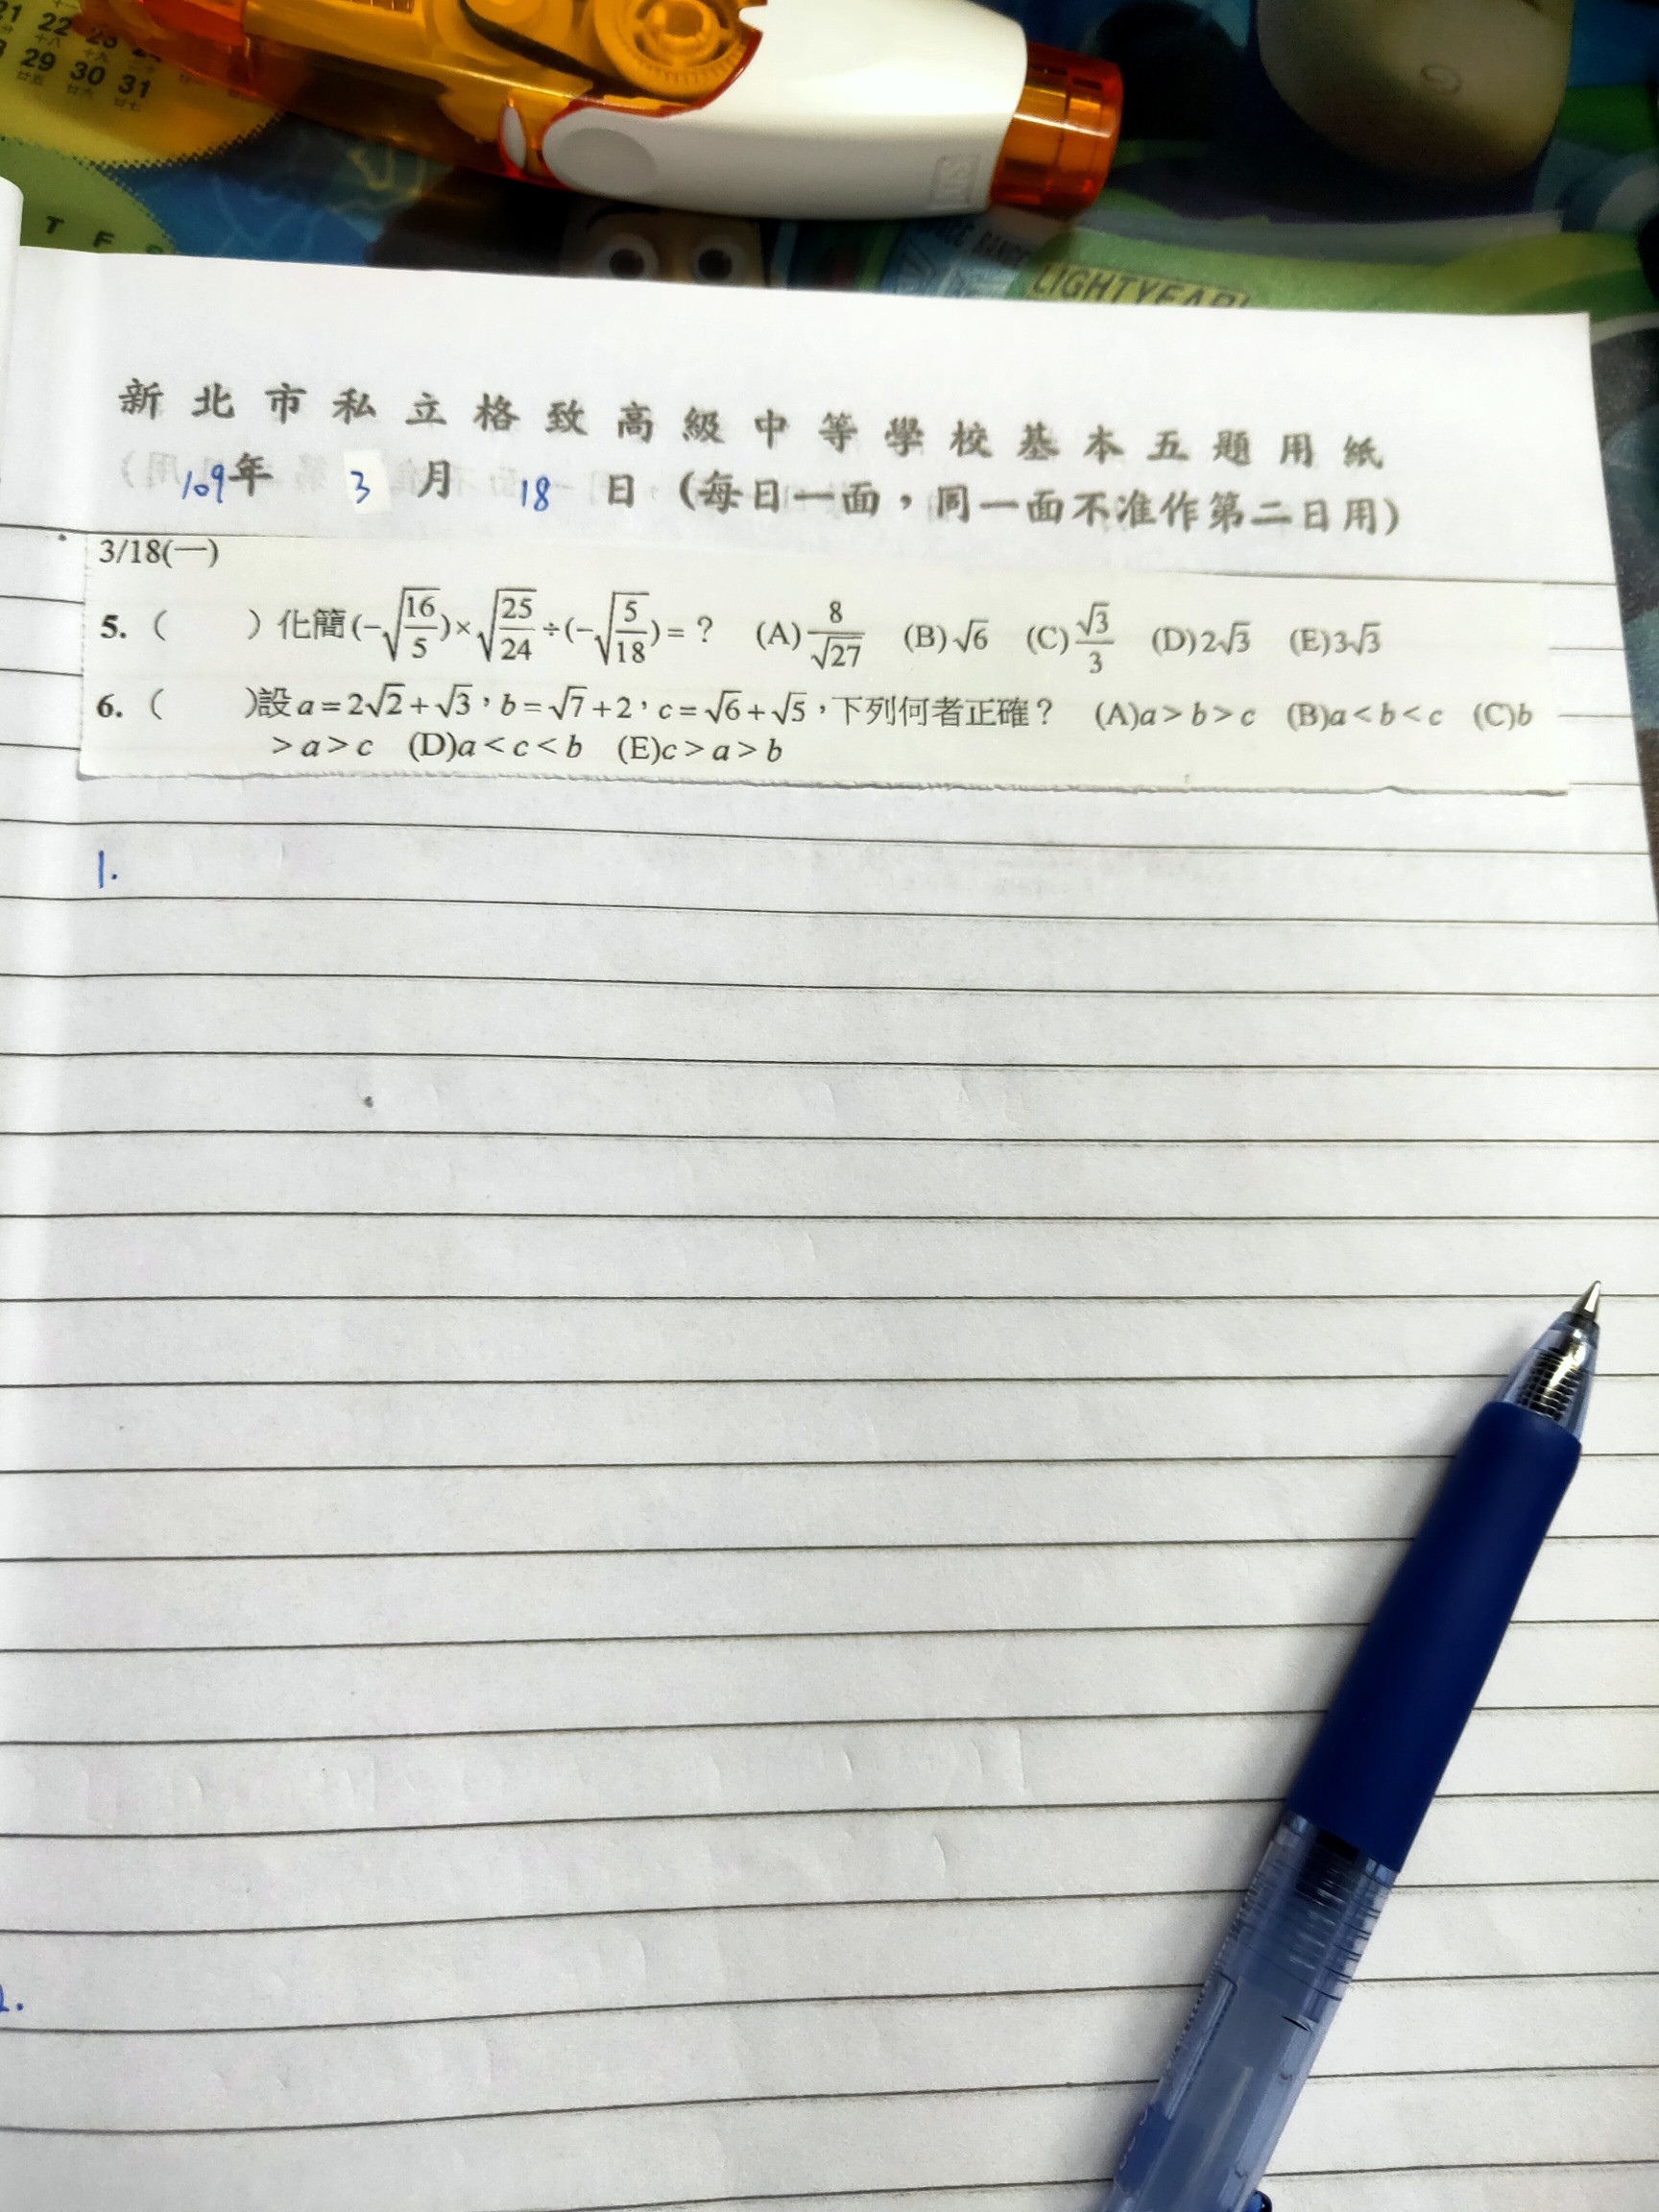 21 22 23
29 30 31
T F S
LIGHTYEAR
新北市私立格致高級中等學校基本五題用紙
109年 3月 18日(每日一面,同一面不准作第二日用)
3/18(一)
5. ( ) 化簡(-√(16/5))×√(25/24)÷(-√(5/18))=? (A)8/√27 (B)√6 (C)√3/3 (D)2√3 (E)3√3
6. ( )設a=2√2+√3,b=√7+2,c=√6+√5,下列何者正確? (A)a>b>c (B)a<b<c (C)b
>a>c (D)a<c<b (E)c>a>b
1.